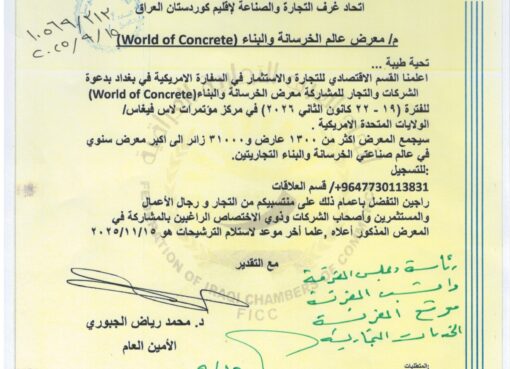 اتحاد غرف التجارة والصناعة لإقليم كوردستان العراق
١٠٥٦٩/٢١٢
٢٠٢٥/٩/١٥
م/ معرض عالم الخرسانة والبناء (World of Concrete)
تحية طيبة ...
اعلمنا القسم الاقتصادي للتجارة والاستثمار في السفارة الامريكية في بغداد بدعوة
الشركات والتجار للمشاركة معرض الخرسانة والبناء(World of Concrete)
للفترة (١٩ – ٢٢ كانون الثاني ٢٠٢٦) في مركز مؤتمرات لاس فيغاس/
الولايات المتحدة الامريكية .
سيجمع المعرض اكثر من ١٣٠٠ عارض و٣١٠٠٠ زائر إلى اكبر معرض سنوي
في عالم صناعتي الخرسانة والبناء التجاريتين.
للتسجيل:
+9647730113831/ قسم العلاقات
راجين التفضل بأعمام ذلك على منتسبيكم من التجار و رجال الأعمال
والمستثمرين وأصحاب الشركات وذوي الاختصاص الراغبين بالمشاركة في
المعرض المذكور أعلاه ،علما أخر موعد لاستلام الترشيحات هو ٢٠٢٥/١١/١٥
مع التقدير
FEDERATION OF IRAQI CHAMBERS OF COMMERCE
FICC
د. محمد رياض الجبوري
الأمين العام
رئاسة ومجلس الغرفة
موقع الغرفة
الخدمات التجارية
المتطلبات